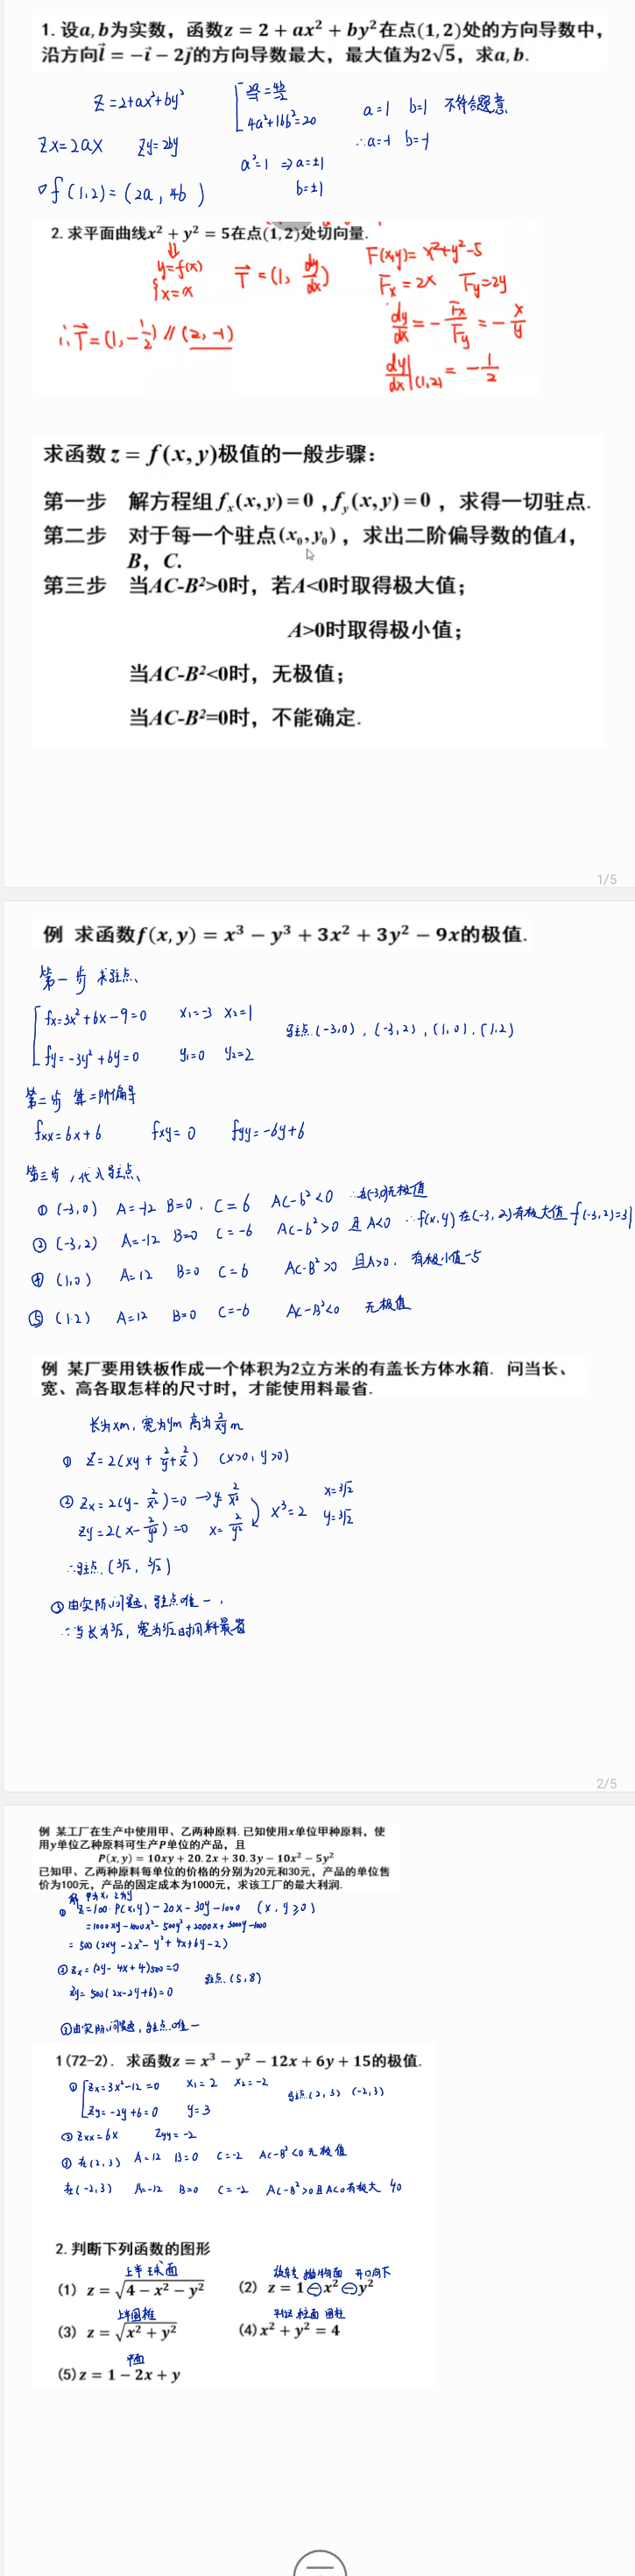 1. 设a,b为实数，函数z = 2 + ax² + by²在点(1,2)处的方向导数中，
沿方向l⃗ = −i⃗ − 2j⃗的方向导数最大，最大值为2√5，求a,b.
z=2+ax²+by²
Zx=2ax Zy=2by
∇f(1,2)=(2a,4b)
4a²+16b²=20
a²=1 ⇒a=±1
b=±1
a=1 b=1 不符合题意
∴a=-1 b=-1
2. 求平面曲线x² + y² = 5在点(1,2)处切向量.
⇓
{y=f(x)
x=x
T⃗=(1, dy/dx)
∴T⃗=(1,-1/2) // (2,-1)
F(x,y)=x²+y²-5
Fx=2x Fy=2y
dy/dx=-Fx/Fy=-x/y
dy/dx|(1,2)=-1/2
求函数z = f(x, y)极值的一般步骤：
第一步 解方程组fx(x, y)=0 ,fy(x, y)=0 ，求得一切驻点.
第二步 对于每一个驻点(x₀,y₀)，求出二阶偏导数的值A，
B，C.
第三步 当AC-B²>0时，若A<0时取得极大值；
A>0时取得极小值；
当AC-B²<0时，无极值；
当AC-B²=0时，不能确定.
1/5
例 求函数f(x, y) = x³ − y³ + 3x² + 3y² − 9x的极值.
第一步 求驻点、
fx=3x²+6x-9=0 x₁=-3 x₂=1
fy=-3y²+6y=0 y₁=0 y₂=2
驻点(-3,0),(-3,2),(1,0),(1,2)
第二步 算二阶偏导
fxx=6x+6 fxy=0 fyy=-6y+6
第三步,代入驻点、
① (-3,0) A=-12 B=0, C=6 AC-b²<0 ∴在(-3,0)无极值
② (-3,2) A=-12 B=0 C=-6 AC-b²>0 且A<0 ∴f(x,y)在(-3,2)有极大值 f(-3,2)=31
④ (1,0) A=12 B=0 C=6 AC-B²>0 且A>0. 有极小值-5
⑤ (1.2) A=12 B=0 C=-6 AC-B²<0 无极值
例 某厂要用铁板作成一个体积为2立方米的有盖长方体水箱. 问当长、
宽、高各取怎样的尺寸时，才能使用料最省.
长为xm, 宽为ym 高为2/xy m
① Z=2(xy+2/y+2/x) (x>0, y>0)
② Zx=2(y-2/x²)=0 →y=2/x²
Zy=2(x-2/y²)=0 x=2/y²
x³=2
x=³√2
y=³√2
∴驻点(³√2, ³√2)
③由实际问题, 驻点唯一,
∴当长为³√2, 宽为³√2时用料最省
2/5
例 某工厂在生产中使用甲、乙两种原料. 已知使用x单位甲种原料，使
用y单位乙种原料可生产P单位的产品，且
P(x, y) = 10xy + 20.2x + 30.3y − 10x² − 5y²
已知甲、乙两种原料每单位的价格的分别为20元和30元，产品的单位售
价为100元，产品的固定成本为1000元，求该工厂的最大利润.
解 甲为x, 乙为y
① Z=100·P(x,y)-20x-30y-1000 (x,y≥0)
=1000xy-1000x²-500y²+2000x+3000y-1000
=500(2xy-2x²-y²+4x+6y-2)
②Zx=(2y-4x+4)500=0
Zy=500(2x-2y+6)=0
驻点(5,8)
③由实际问题,驻点唯一
1(72−2). 求函数z = x³ − y² − 12x + 6y + 15的极值.
① Zx=3x²-12=0 x₁=2 x₂=-2
Zy=-2y+6=0 y=3
驻点(2,3) (-2,3)
② Zxx=6x Zyy=-2
③ 在(2,3) A=12 B=0 C=-2 AC-B²<0 无极值
在(-2,3) A=-12 B=0 C=-2 AC-B²>0且A<0有极大 40
2. 判断下列函数的图形
上半球面 旋转抛物面 开口向下
(1) z = √4 − x² − y² (2) z = 1 − x² − y²
上半圆锥 柱面 圆柱
(3) z = √x² + y² (4) x² + y² = 4
平面
(5) z = 1 − 2x + y